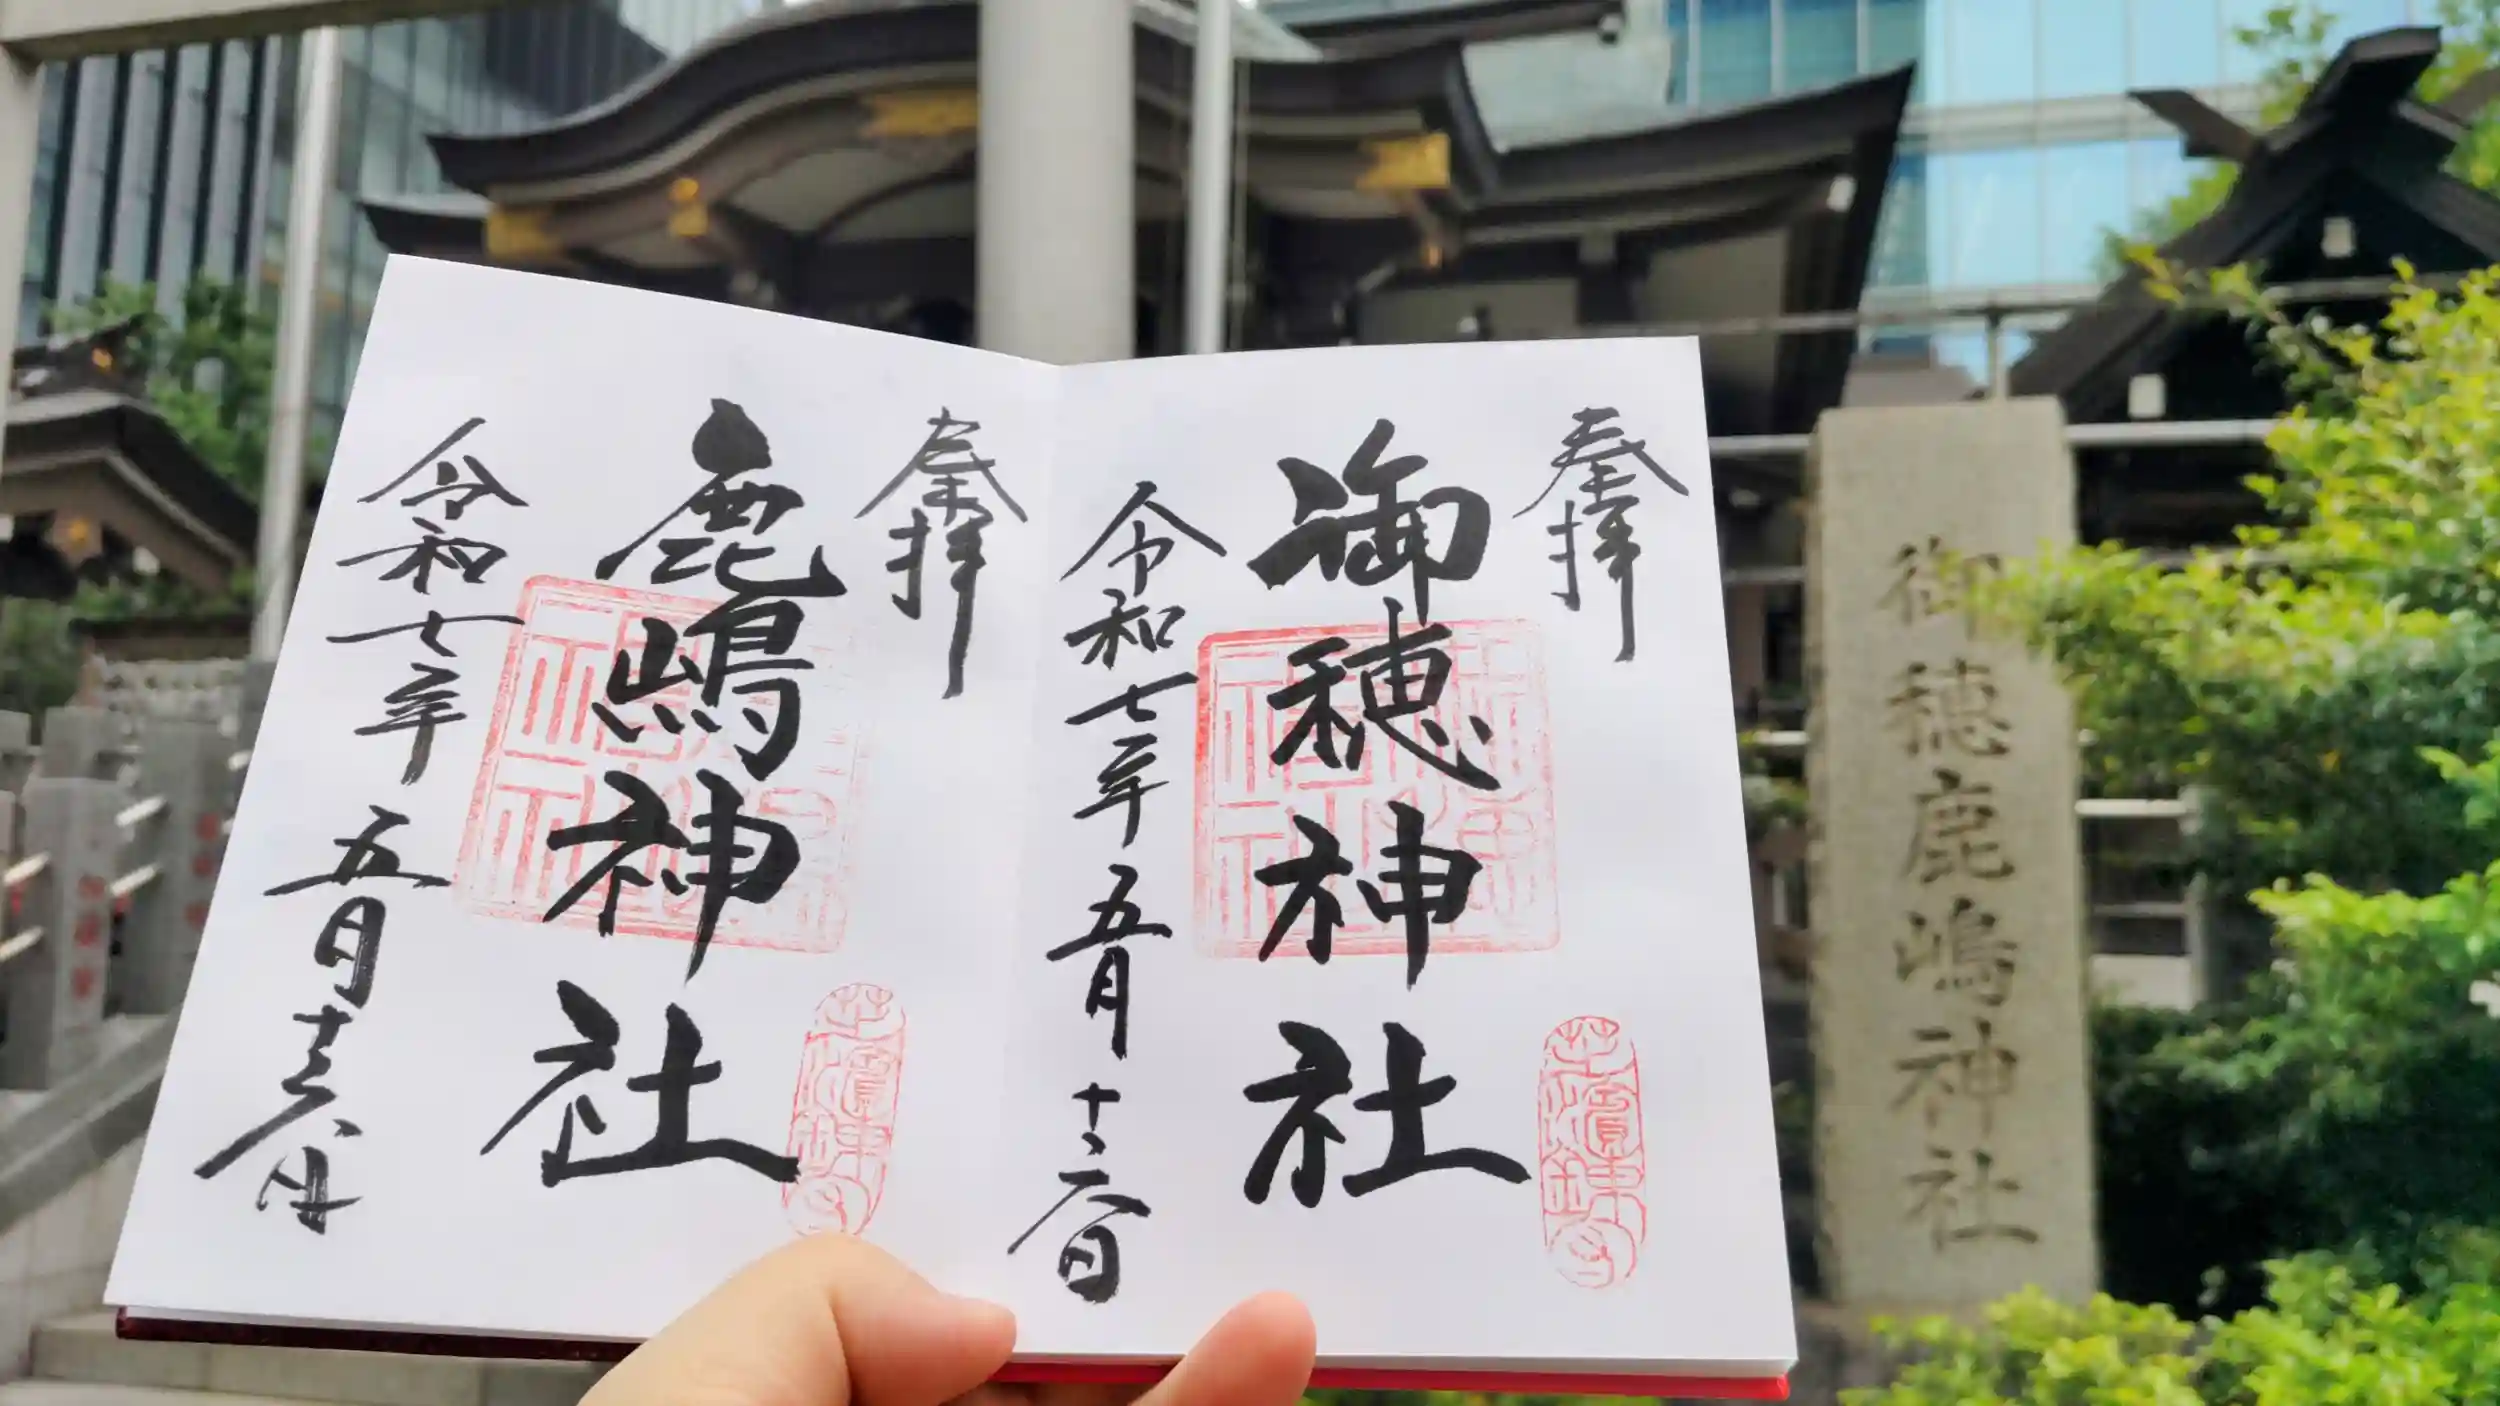 奉拝
御穂神社
令和七年五月十六日
奉拝
鹿嶋神社
令和七年五月十六日
御穂鹿嶋神社